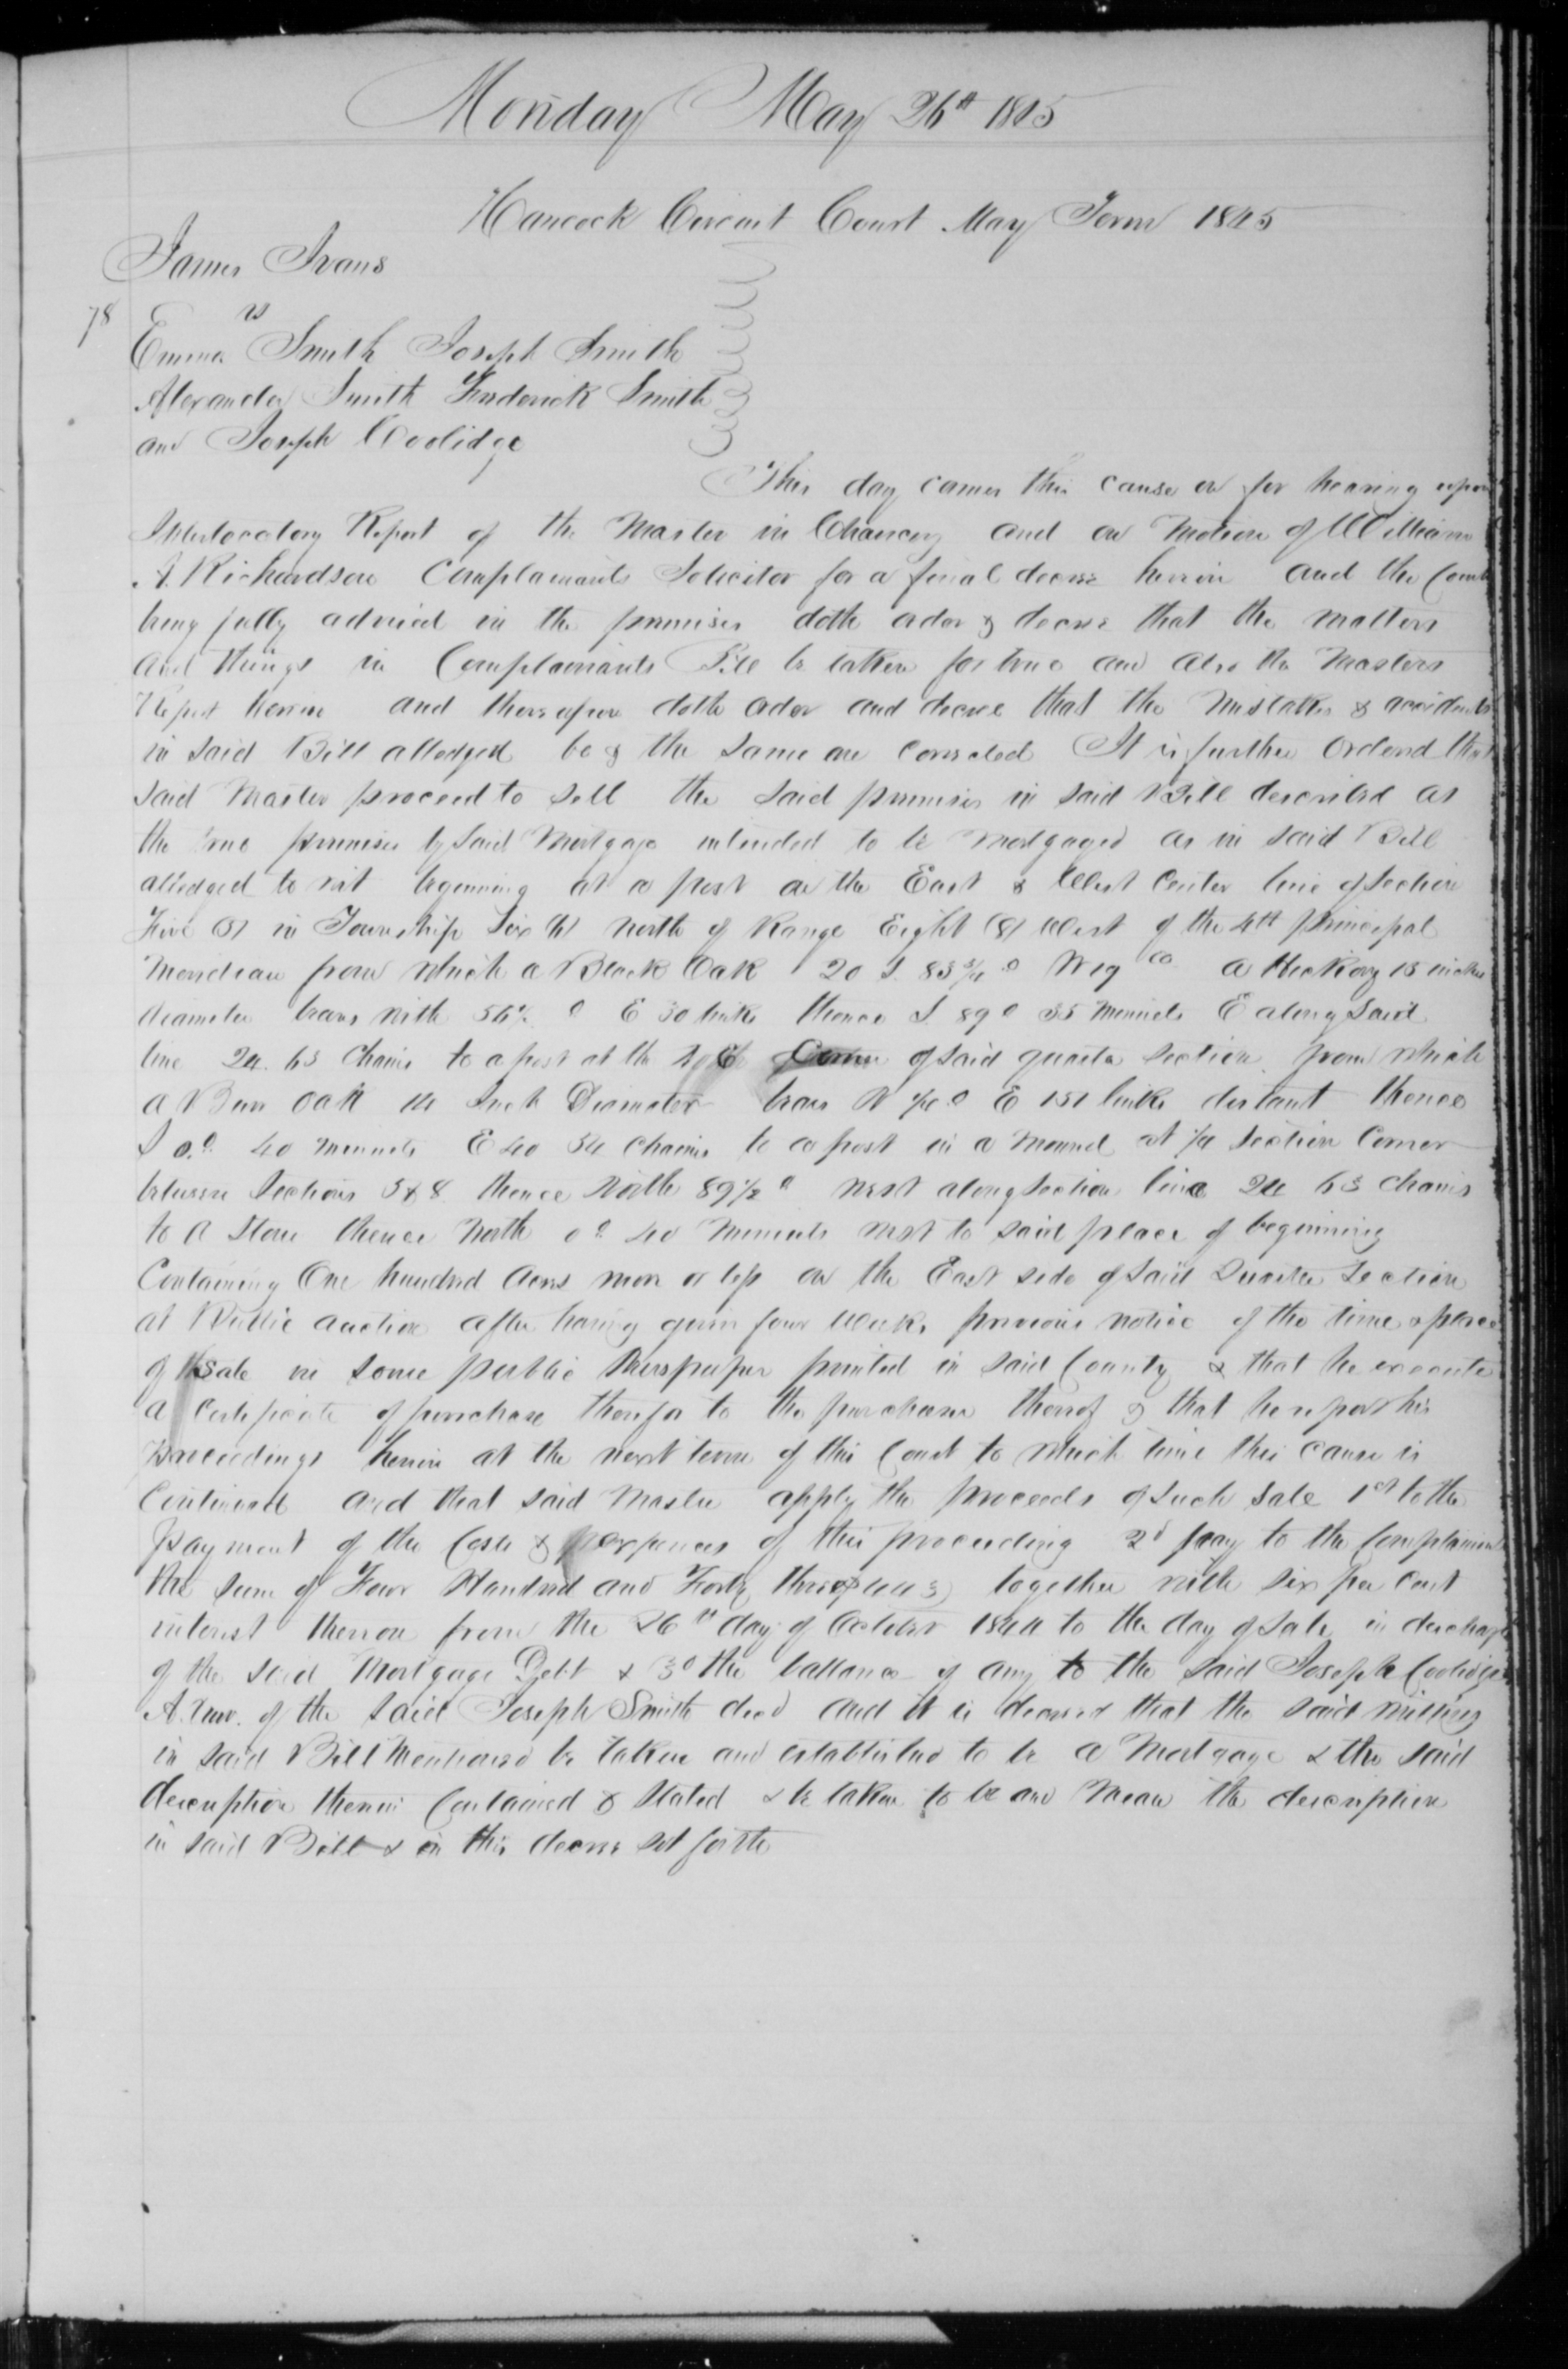 Monday May 26th 1845
Hancock Circuit Court May Term 1845
James Ivans
vs
78
Emma Smith Joseph Smith
Alexander Smith Frederick Smith
and Joseph Coolidge
This day comes this cause on for hearing upon
Interlocatory Report of the Master in Chancery and on Motion of William
A. Richardson Complainants Solicitor for a final decree herein and the Court
being fully advised in the premises doth order & decree that the matters
and things in Complainants Bill be taken for true and also the Masters
Report herein and thereupon doth order and decree that the mistakes & accidents
in said Bill alledged be & the same are corrected It is further Orderd that
said Master proceed to sell the said premises in said Bill described as
the true premises by said Mortgage intended to be mortgaged as in said Bill
alledged to wit beginning at a post on the East & West center line of section
Five (5) in Township Six (6) north of Range Eight (8) West of the 4th principal
Meridian from which a Black Oak 20 S. 83 3/4 ° W 19 a Hickory 13 inches
diameter bears north 56 ½ ° E 30 links thence S. 89° 35 Minuets E along said
line 24. 63 Chains to a post at the Corner of said quarter section from which
a Burr Oak 14 Inch Diameter bears N ° E 151 links distant thence
S 0.° 40 minuets E 40 34 chains to a post in a mound at 1/4 section Corner
between Sections 5 & 8 thence North 89 1/2 ° west along section line 24 63 chains
to a Stone thence North 0° 40 Minuets west to said place of beginning
Containing One hundred acres more or less on the East side of said Quarter Section
at Public auction after having given four weeks previous notice of the time & place
of sale in some public Newspaper printed in said County & that he execute
a Certificate of purchase therefor to the purchaser thereof & that he report his
proceedings herein at the next term of this Court to which time this cause is
Continued and that said Master apply the proceeds of such sale 1st to the
payment of the Costs & expences of this proceeding 2d pay to the Complainant
the sum of Four Hundred and Forty three together with six per cent
interest thereon from the 26th day of October 1844 to the day of sale in discharge
of the said Mortgage Debt & 3d the ballance if any to the said Joseph Coolidge
Admr. of the said Joseph Smith decd and it is decreed that the said writing
in said Bill mentioned be taken and established to be a Mortgage & the said
description therein Contained & stated & be taken to be and mean the description
in said Bill & in this decree set forth